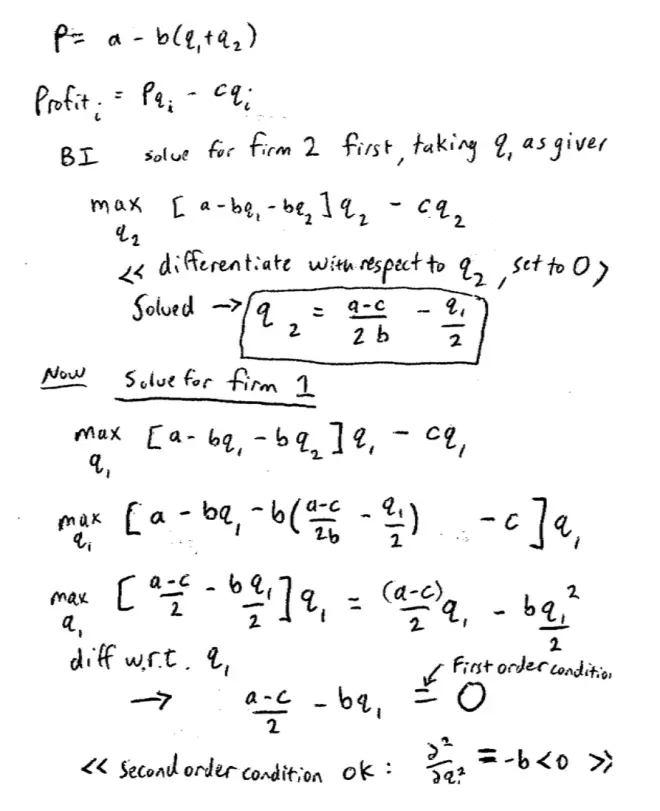 P = a - b(q₁+q₂)
Profitᵢ = Pqᵢ - cqᵢ
BI solve for firm 2 first, taking q₁ as given
max [ a-bq₁-bq₂ ] q₂ - cq₂
q₂
<< differentiate with respect to q₂, set to 0 >
Solved → q₂ = (a-c)/2b - q₁/2
Now Solve for firm 1
max [a - bq₁ - bq₂] q₁ - cq₁
q₁
max [a - bq₁ - b((a-c)/2b - q₁/2) - c] q₁
q₁
max [(a-c)/2 - bq₁/2] q₁ = (a-c)/2 q₁ - bq₁²/2
q₁
diff w.r.t. q₁
First order condition
→ (a-c)/2 - bq₁ = 0
<< Second order condition ok : ∂²/∂q₁² = -b < 0 >>